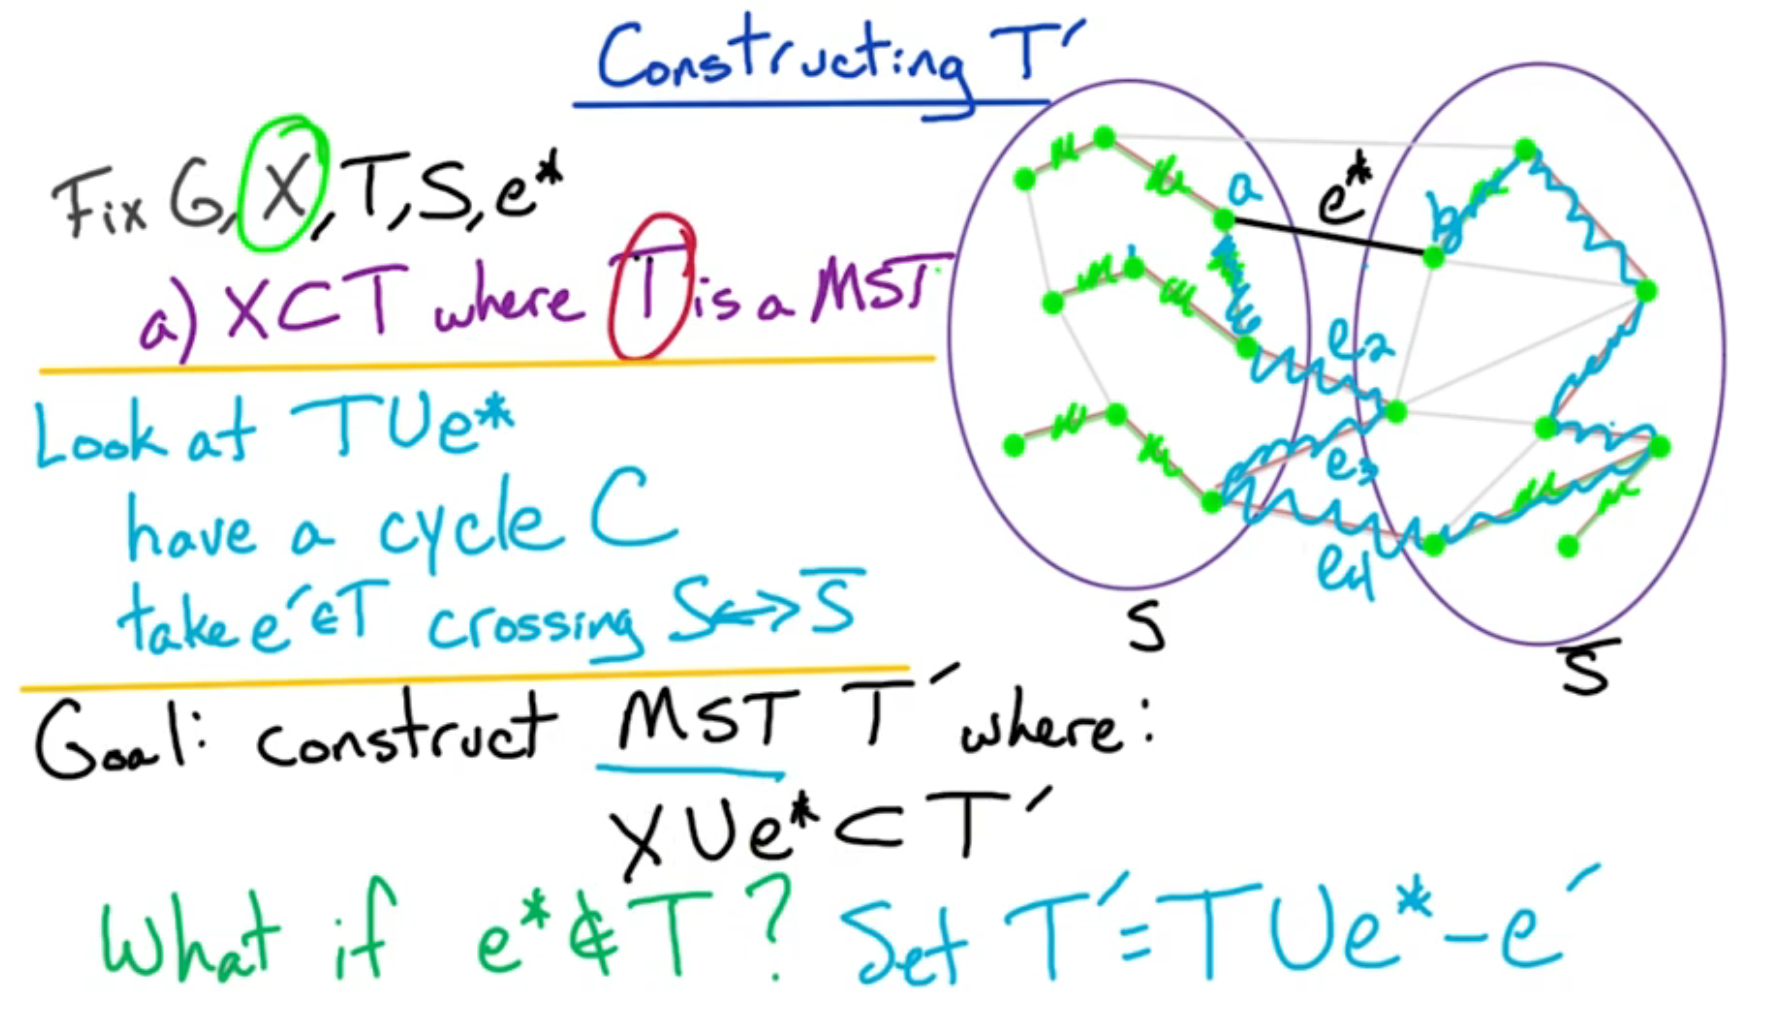 Constructing T′
Fix G, X, T, S, e*
a) X⊂T where T is a MST
Look at T∪e*
have a cycle C
take e′∈T crossing S↔S̅
Goal: construct MST T′ where:
X∪e*⊂T′
What if e*∉T? Set T′=T∪e*−e′
a
e*
b
e2
e3
e4
S
S̅